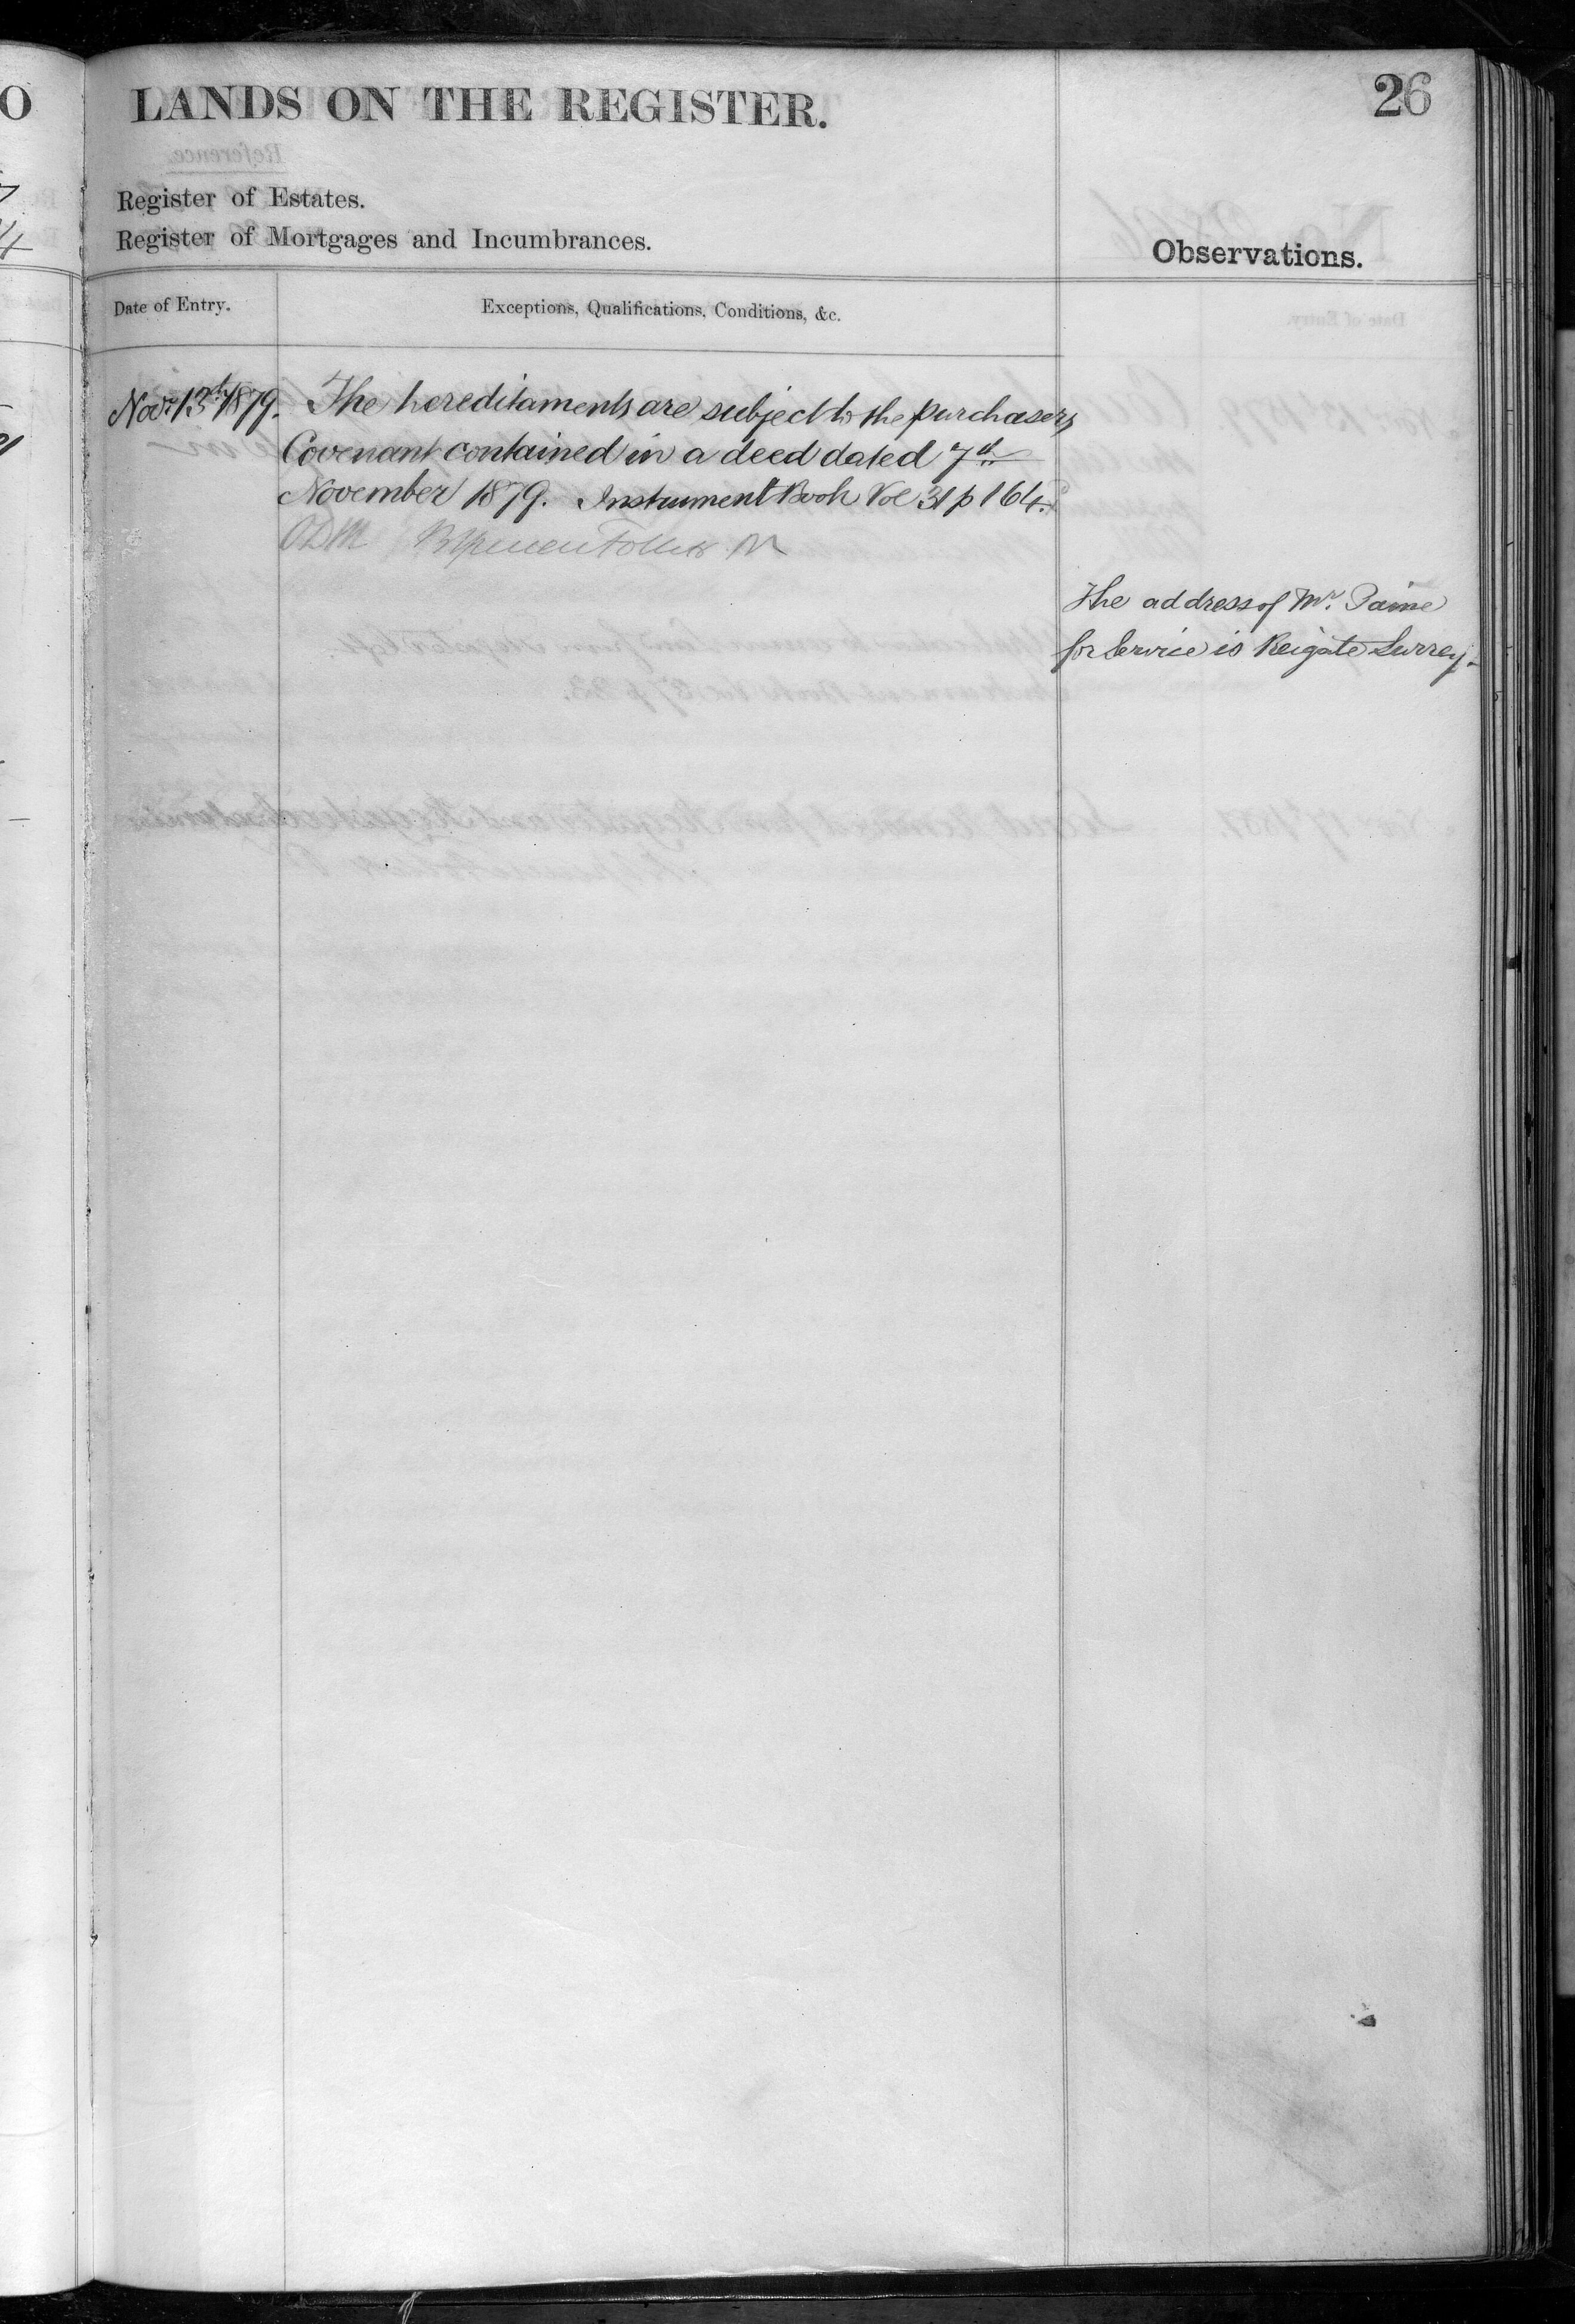 LANDS ON THE REGISTER.
26
Register of Estates.
Register of Mortgages and Incumbrances.
Observations.
Date of Entry.
Exceptions, Qualifications, Conditions, &c.
Novr 13th 1879. The hereditaments are subject to the purchasers
Covenant contained in a deed dated 7th
November 1879. Instrument Book Vol 31 p 164.
The address of Mr. Paine
for Service is Reigate Surrey.